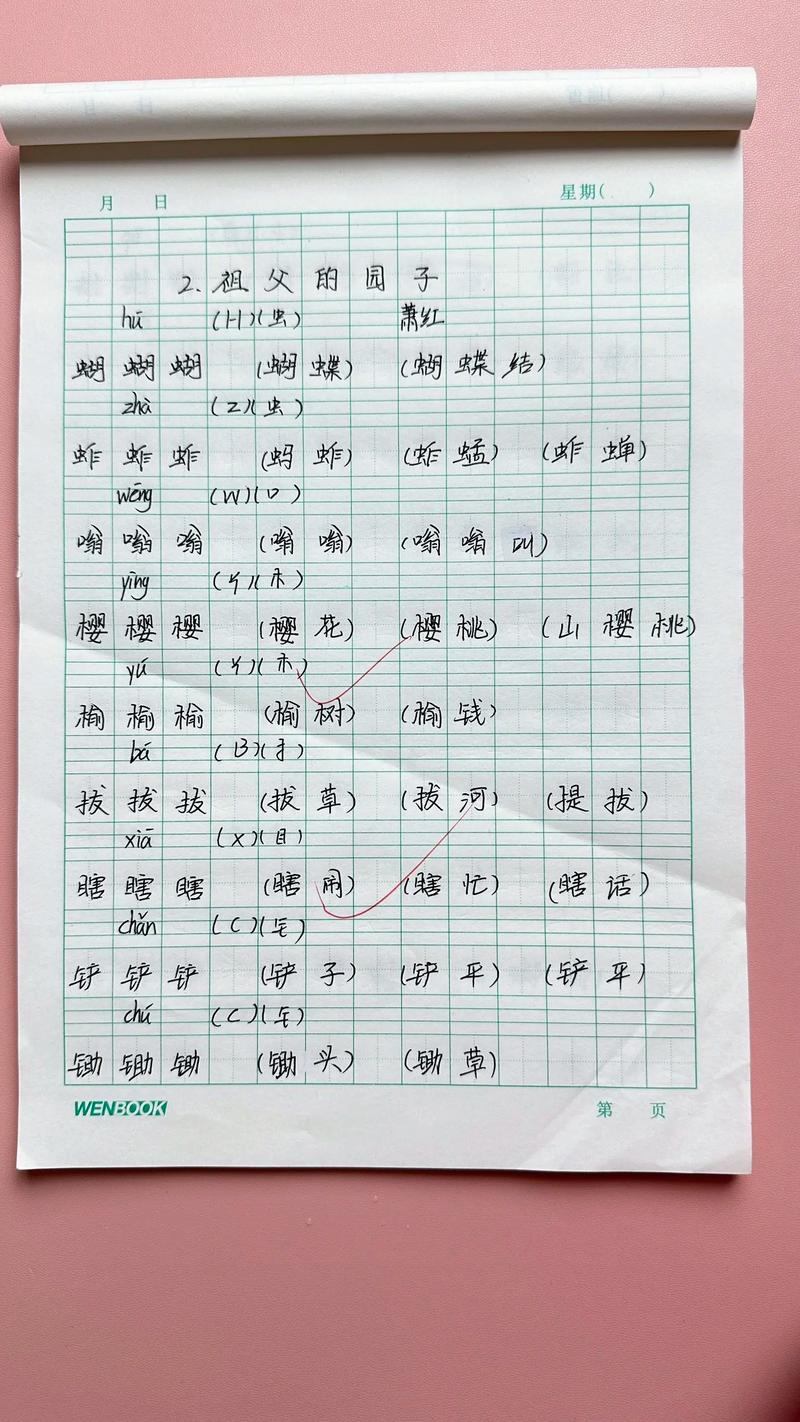 月 日 星期( )
2. 祖父的园子
hú (H)(虫) 萧红
蝴 蝴 蝴 (蝴蝶) (蝴蝶结)
zhà (Z)(虫)
蚱 蚱 蚱 (蚂蚱) (蚱蜢) (蚱蝉)
wēng (W)(口)
嗡 嗡 嗡 (嗡嗡) (嗡嗡叫)
yīng (Y)(木)
樱 樱 樱 (樱花) (樱桃) (山樱桃)
yú (Y)(木)
榆 榆 榆 (榆树) (榆钱)
bá (B)(扌)
拔 拔 拔 (拔草) (拔河) (提拔)
xiā (X)(目)
瞎 瞎 瞎 (瞎闹) (瞎忙) (瞎话)
chǎn (C)(钅)
铲 铲 铲 (铲子) (铲平) (铲平)
chú (C)(钅)
锄 锄 锄 (锄头) (锄草)
WENBOOK 第 页